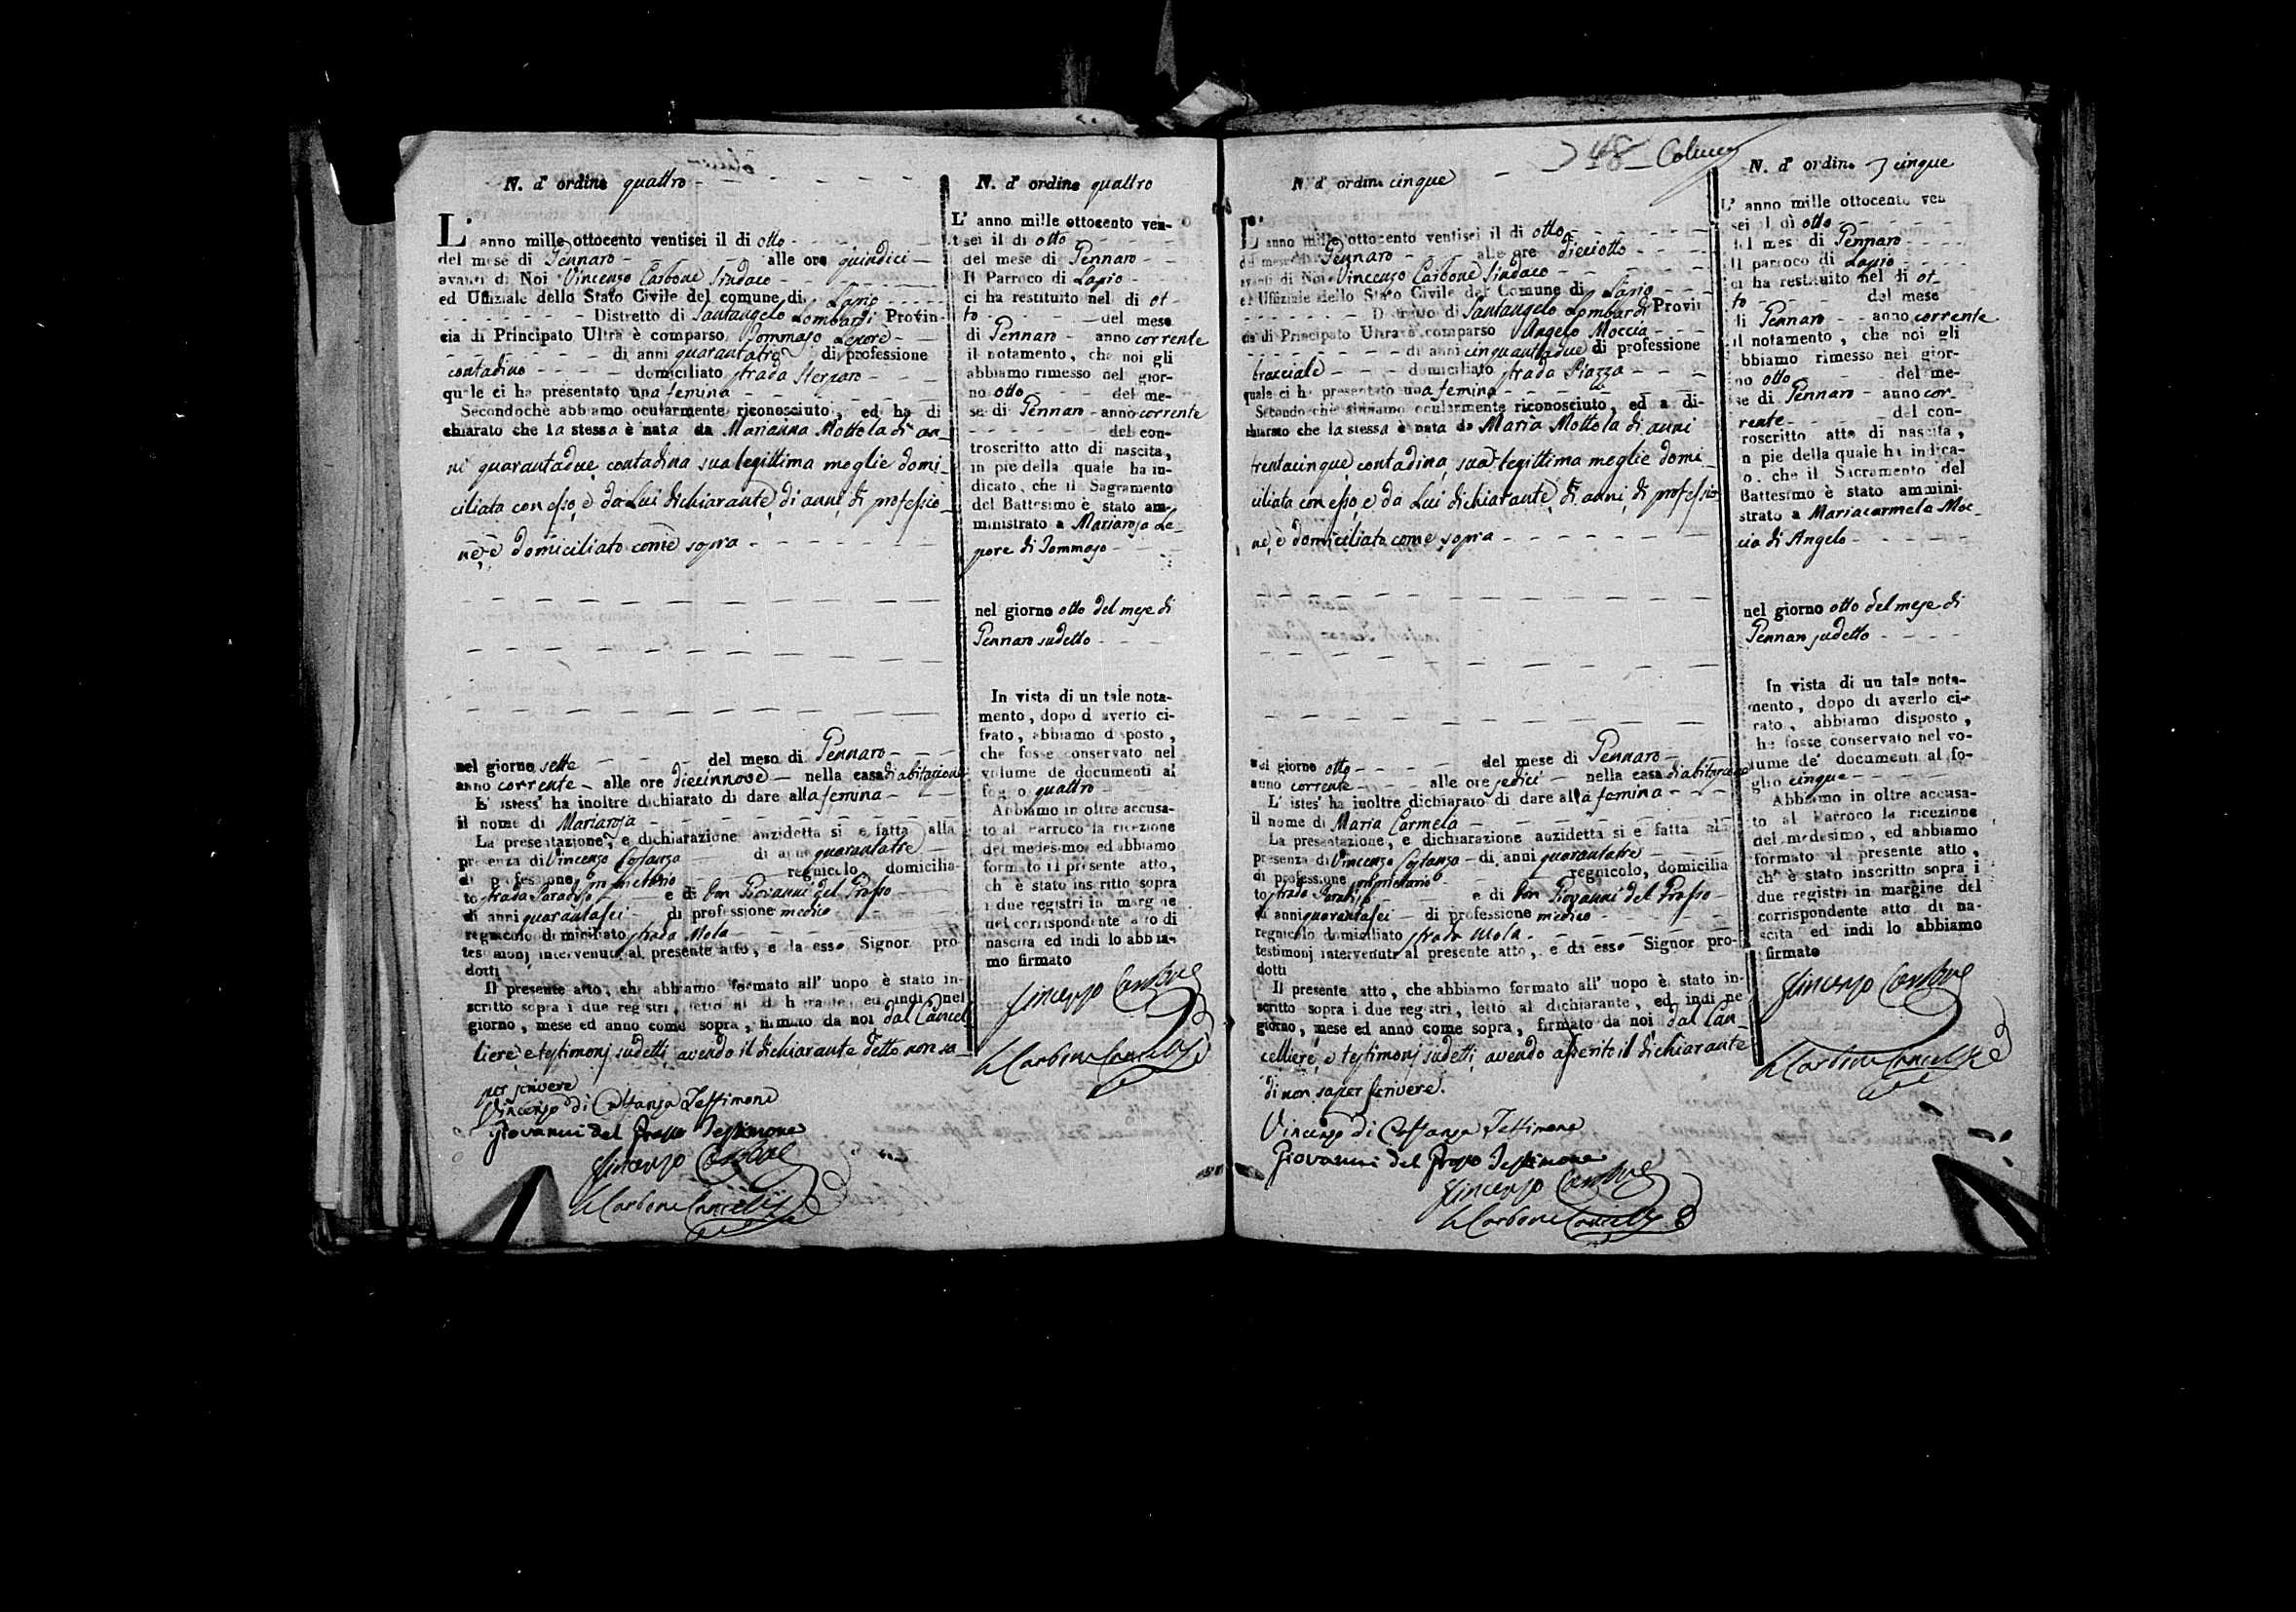 N. d' ordine quattro
L' anno mille ottocento ventisei il di otto
del mese di Gennaro alle ore quindici
avanti di Noi Vincenzo Carbone Sindaco
ed Uffiziale dello Stato Civile del comune di Lapio
Distretto di Santangelo Lombardi Provin-
cia di Principato Ultra è comparso Tommaso Lepore
di anni quarantatre di professione
contadino domiciliato strada
quale ci ha presentato una femina
Secondochè abbiamo ocularmente riconosciuto, ed ha di
chiarato che la stessa è nata da Marianna Mottola di an_
ni quarantadue contadina sua legittima moglie domi_
ciliata con esso, e da Lui dichiarante, di anni, di professio_
ne, e domiciliato come sopra
nel giorno sette del mese di Gennaro
anno corrente alle ore diecinnove nella casa di abitazione
L' istess' ha inoltre dichiarato di dare alla femina
il nome di Mariarosa
La presentazione, e dichiarazione anzidetta si è fatta alla
presenza di Vincenzo Costanzo di anni quarantatre
di professione proprietario regnicolo domicilia-
to strada Paradiso e di Don Giovanni del Grosso
di anni quarantasei di professione medico
regnicolo domiciliato strada Mola
testimonj intervenuti al presente atto, e da esso Signor pro-
dotti
Il presente atto, che abbiamo formato all' uopo è stato in-
scritto sopra i due registri, letto al dichiarante, ed indi nel
giorno, mese ed anno come sopra, firmato da noi dal Cancel_
liere, e testimonj sudetti, avendo il dichiarante detto non sa_
per scrivere
Vincenzo di Costanza Testimone
Giovanni del Grosso Testimone
Vincenzo Carbone
Carbone Cancelliere
N. d' ordine quattro
L' anno mille ottocento ven-
tisei il di otto
del mese di Gennaro
Il Parroco di Lapio
ci ha restituito nel di ot-
to del mese
di Gennaro anno corrente
il notamento, che noi gli
abbiamo rimesso nel gior-
no otto del me-
se di Gennaro anno corrente
del con-
troscritto atto di nascita,
in piè della quale ha in-
dicato, che il Sagramento
del Battesimo è stato am-
ministrato a Mariarosa Le_
pore di Tommaso
nel giorno otto del mese di
Gennaro sudetto
In vista di un tale nota-
mento, dopo d averlo ci-
frato, abbiamo disposto,
che fosse conservato nel
volume de documenti al
foglio quattro
Abbiamo in oltre accusa-
to al Parroco la ricezione
del medesimo, ed abbiamo
formato il presente atto,
ch' è stato inscritto sopra
i due registri in margine
del corrispondente atto di
nascita ed indi lo abbia-
mo firmato
Vincenzo Carbone
Carbone Cancelliere
48 Colucci
N. d' ordine cinque
L' anno mille ottocento ventisei il di otto
del mese di Gennaro alle ore dieciotto
avanti di Noi Vincenzo Carbone Sindaco
ed Uffiziale dello Stato Civile del Comune di Lapio
Distretto di Santangelo Lombardi Provin
cia di Principato Ultra è comparso Angelo Moccia
di anni cinquantadue di professione
bracciale domiciliato strada Piazza
quale ci ha presentato una femina
Secondo chè abbiamo ocularmente riconosciuto, ed a di-
chiarato che la stessa è nata da Maria Mottola di anni
trentacinque contadina, sua legittima moglie domi_
ciliata con esso, e da Lui dichiarante, di anni, di professio_
ne, e domiciliato come sopra
nel giorno otto del mese di Gennaro
anno corrente alle ore sedici nella casa di abitazione
L' istes' ha inoltre dichiarato di dare alla femina
il nome di Maria Carmela
La presentazione, e dichiarazione anzidetta si è fatta alla
presenza di Vincenzo Costanzo di anni quarantatre
di professione proprietario regnicolo, domicilia
to strada Paradiso e di Don Giovanni del Grosso
di anni quarantasei di professione medico
regnicolo domiciliato strada Mola
testimonj intervenuti al presente atto, e da esso Signor pro-
dotti
Il presente atto, che abbiamo formato all' uopo è stato in-
scritto sopra i due registri, letto al dichiarante, ed indi ne
giorno, mese ed anno come sopra, firmato da noi dal Can_
celliere, e testimonj sudetti, avendo asserito il dichiarante
di non saper scrivere.
Vincenzo di Costanza Testimone
Giovanni del Grosso Testimone
Vincenzo Carbone
Carbone Cancelliere
N. d' ordine cinque
L' anno mille ottocento ven
sei il di otto
del mese di Gennaro
Il parroco di Lapio
ci ha restituito nel di ot_
to del mese
di Gennaro anno corrente
il notamento, che noi gli
abbiamo rimesso nel gior-
no otto del me-
se di Gennaro anno cor_
rente del con-
troscritto atto di nascita,
in piè della quale ha indica-
to, che il Sacramento del
Battesimo è stato ammini-
strato a Mariacarmela Moc_
cia di Angelo
nel giorno otto del mese di
Gennaro sudetto
In vista di un tale nota-
mento, dopo di averlo ci-
frato, abbiamo disposto,
che fosse conservato nel vo-
lume de' documenti al fo-
glio cinque
Abbiamo in oltre accusa-
to al Parroco la ricezione
del medesimo, ed abbiamo
formato il presente atto,
ch' è stato inscritto sopra i
due registri in margine del
corrispondente atto di na-
scita ed indi lo abbiamo
firmato
Vincenzo Carbone
Carbone Cancelliere